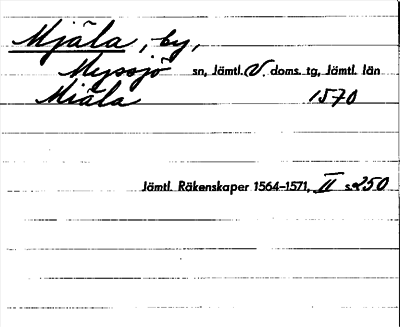 Mjäla, by,
Myssjö sn, Jämtl. V. doms. tg, Jämtl. län
Miäla 1570
Jämtl. Räkenskaper 1564–1571, II s. 250